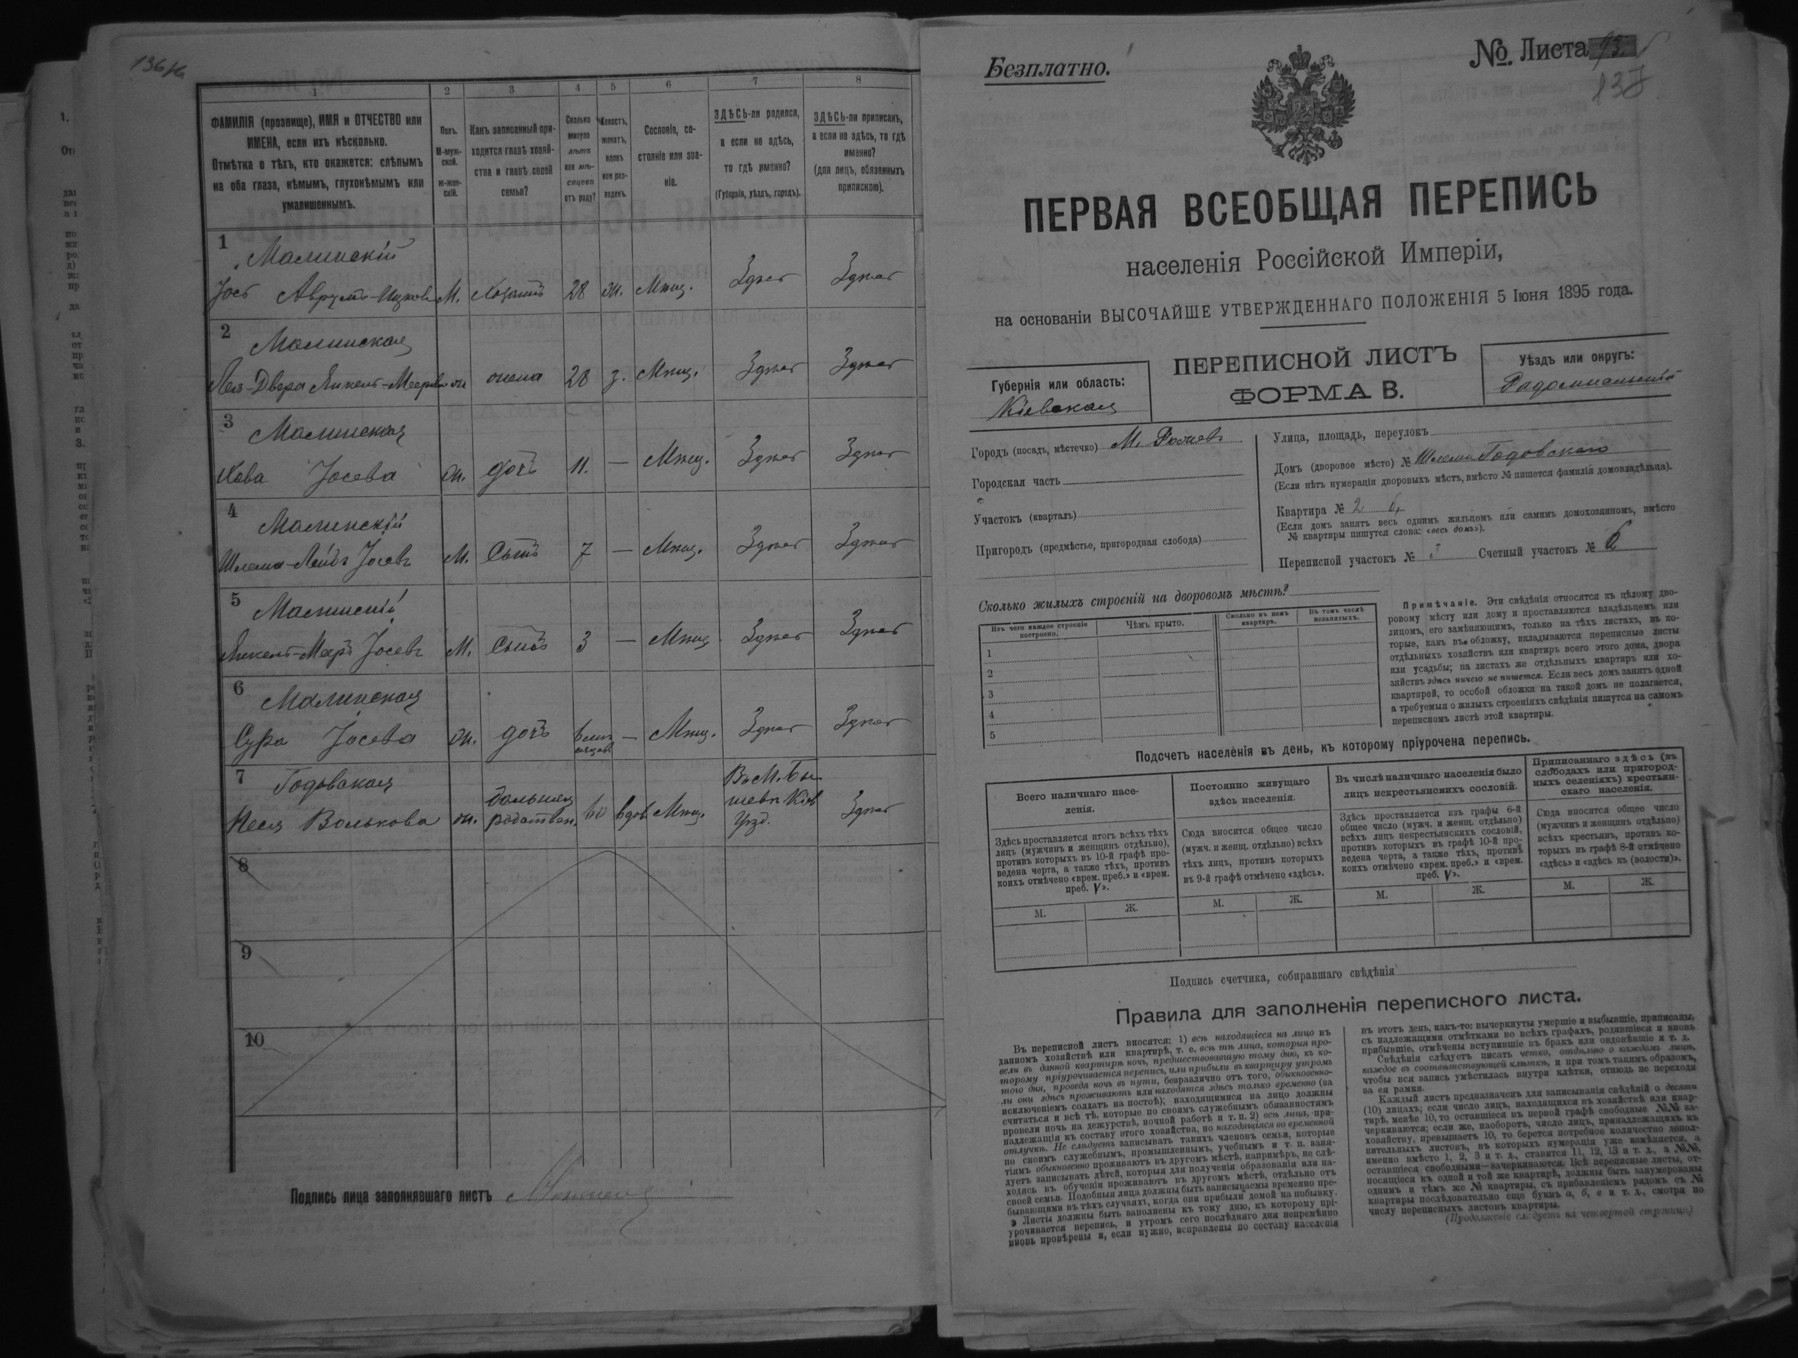 1 2 3 4 5 6 7 8
ФАМИЛІЯ (прозвище), ИМЯ и ОТЧЕСТВО или
ИМЕНА, если ихъ нѣсколько.
Отмѣтка о тѣхъ, кто окажется: слѣпымъ
на оба глаза, нѣмымъ, глухонѣмымъ или
умалишеннымъ.
Полъ.
М-муж-
ской.
ж-жен-
скій.
Какъ записанный при-
ходится главѣ хозяй-
ства и главѣ своей
семьи?
Сколько
минуло
лѣтъ
или мѣ-
сяцевъ
отъ роду?
Холостъ,
женатъ,
вдовъ
или раз-
веденъ.
Сословіе, со-
стояніе или зва-
ніе.
ЗДѢСЬ-ли родился,
а если не здѣсь,
то гдѣ именно?
(Губернія, уѣздъ, городъ).
ЗДѢСЬ-ли приписанъ,
а если не здѣсь, то гдѣ
именно?
(для лицъ, обязанныхъ
припискою).
1 Малинскій
Авrумъ-Ицков М. 28 ж. Мѣщ. Здѣсь Здѣсь
2 Малинская
жена 28 з. Мѣщ. Здѣсь Здѣсь
3 Малинская
Хова Іосева ж. дочь 11. — Мѣщ. Здѣсь Здѣсь
4 Малинскій
Шлема-Лейбъ Іосевъ М. Сынъ 7 — Мѣщ. Здѣсь Здѣсь
5 Малинскій
Іосевъ М. Сынъ 3 — Мѣщ. Здѣсь Здѣсь
6 Малинская
Сура Іосева ж. дочь — Мѣщ. Здѣсь Здѣсь
7 Годовская
Песя Волькова ж. дальняя родствен. 60 вдов Мѣщ. Здѣсь
8
9
10
Подпись лица заполнявшаго листъ
Безплатно.
№ Листа
137
ПЕРВАЯ ВСЕОБЩАЯ ПЕРЕПИСЬ
населенія Россійской Имперіи,
на основаніи ВЫСОЧАЙШЕ УТВЕРЖДЕННАГО ПОЛОЖЕНІЯ 5 Іюня 1895 года.
ПЕРЕПИСНОЙ ЛИСТЪ
ФОРМА В.
Губернія или область:
Кіевская
Уѣздъ или округъ:
Радомысльскій
Городъ (посадъ, мѣстечко)
Городская часть
Участокъ (кварталъ)
Пригородъ (предмѣстье, пригородная слобода)
Улица, площадь, переулокъ
Домъ (дворовое мѣсто) № Шлема Годовскаго
(Если нѣтъ нумераціи дворовыхъ мѣстъ, вмѣсто № пишется фамилія домовладѣльца).
Квартира № 2
(Если домъ занятъ весь однимъ жильцомъ или самимъ домохозяиномъ, вмѣсто
№ квартиры пишутся слова: «весь домъ»).
Переписной участокъ № 3 Счетный участокъ № 6
Сколько жилыхъ строеній на дворовомъ мѣстѣ?
Изъ чего каждое строеніе
построено.
Чѣмъ крыто.
Сколько въ немъ
квартиръ.
Въ томъ числѣ
незанятыхъ.
1
2
3
4
5
Примѣчаніе. Эти свѣдѣнія относятся къ цѣлому дво-
ровому мѣсту или дому и проставляются владѣльцемъ или
лицомъ, его замѣняющимъ, только на тѣхъ листахъ, въ ко-
торые, какъ въ обложку, вкладываются переписные листы
отдѣльныхъ хозяйствъ или квартиръ всего этого дома, двора
или усадьбы; на листахъ же отдѣльныхъ квартиръ или хо-
зяйствъ здѣсь ничего не пишется. Если весь домъ занятъ одной
квартирой, то особой обложки на такой домъ не полагается,
а требуемыя о жилыхъ строеніяхъ свѣдѣнія пишутся на самомъ
переписномъ листѣ этой квартиры.
Подсчетъ населенія въ день, къ которому пріурочена перепись.
Всего наличнаго насе-
ленія.
Здѣсь проставляется итогъ всѣхъ тѣхъ
лицъ (мужчинъ и женщинъ отдѣльно),
противъ которыхъ въ 10-й графѣ про-
ведена черта, а также тѣхъ, противъ
коихъ отмѣчено «врем. преб.» и «врем.
преб. V».
Постоянно живущаго
здѣсь населенія.
Сюда вносится общее число
(мужч. и женщ. отдѣльно) всѣхъ
тѣхъ лицъ, противъ которыхъ
въ 9-й графѣ отмѣчено «здѣсь».
Въ числѣ наличнаго населенія было
лицъ некрестьянскихъ сословій.
Здѣсь проставляется изъ графы 6-й
общее число (мужч. и женщ. отдѣльно)
всѣхъ лицъ некрестьянскихъ сословій,
противъ которыхъ въ графѣ 10-й про-
ведена черта, а также тѣхъ, противъ
коихъ отмѣчено «врем. преб.» и «врем.
преб. V».
Приписаннаго здѣсь (въ
слободахъ или пригород-
ныхъ селеніяхъ) крестьян-
скаго населенія.
Сюда вносится общее число
(мужчинъ и женщинъ отдѣльно)
всѣхъ крестьянъ, противъ ко-
торыхъ въ графѣ 8-й отмѣчено
«здѣсь» и «здѣсь въ (волости)».
М. Ж. М. Ж. М. Ж. М. Ж.
Подпись счетчика, собиравшаго свѣдѣнія
Правила для заполненія переписного листа.
Въ переписной листъ вносятся: 1) всѣ находящіеся на лицо въ
данномъ хозяйствѣ или квартирѣ, т. е. всѣ тѣ лица, которыя про-
вели въ данной квартирѣ ночь, предшествовавшую тому дню, къ ко-
торому пріурочивается перепись, или прибыли въ квартиру утромъ
того дня, проведя ночь въ пути, безразлично отъ того, обыкновенно-
ли они здѣсь проживаютъ или находятся здѣсь только временно (за
исключеніемъ солдатъ на постоѣ); находящимися на лицо должны
считаться и всѣ тѣ, которые по своимъ служебнымъ обязанностямъ
провели ночь на дежурствѣ, ночной работѣ и т. п. 2) всѣ лица, при-
надлежащія къ составу этого хозяйства, но находящіяся во временной
отлучкѣ. Не слѣдуетъ записывать такихъ членовъ семьи, которые
по своимъ служебнымъ, промышленнымъ, учебнымъ и т. п. заня-
тіямъ обыкновенно проживаютъ въ другомъ мѣстѣ, напримѣръ, не слѣ-
дуетъ записывать дѣтей, которыя для полученія образованія или на-
ходясь въ обученіи проживаютъ въ другомъ мѣстѣ, отдѣльно отъ
своей семьи. Подобныя лица должны быть записываемы временно пре-
бывающими въ тѣхъ случаяхъ, когда они прибыли домой на побывку.
Листы должны быть заполнены къ тому дню, къ которому прі-
урочивается перепись, и утромъ сего послѣдняго дня непремѣнно
вновь провѣрены и, если нужно, исправлены по составу населенія
въ этотъ день, какъ-то: вычеркнуты умершіе и выбывшіе, приписаны
съ надлежащими отмѣтками во всѣхъ графахъ, родившіеся и вновь
прибывшіе, отмѣчены вступившіе въ бракъ или овдовѣвшіе и т. д.
Свѣдѣнія слѣдуетъ писать четко, отдѣльно о каждомъ лицѣ,
каждое въ соотвѣтствующей клѣткѣ, и при томъ такимъ образомъ,
чтобы вся запись умѣстилась внутри клѣтки, отнюдь не переходя
на ея рамки.
Каждый листъ предназначенъ для записыванія свѣдѣній о десяти
(10) лицахъ; если число лицъ, находящихся въ хозяйствѣ или квар-
тирѣ, менѣе 10, то оставшіеся въ первой графѣ свободные №№ за-
черкиваются; если же, наоборотъ, число лицъ, принадлежащихъ къ
хозяйству, превышаетъ 10, то берется потребное количество допол-
нительныхъ листовъ, въ которыхъ нумерація уже измѣняется, а
именно вмѣсто 1, 2, 3 и т. д., ставится 11, 12, 13 и т. д., а №№,
оставшіеся свободными—зачеркиваются. Всѣ переписные листы, от-
носящіеся къ одной и той же квартирѣ, должны быть занумерованы
однимъ и тѣмъ же № квартиры, съ прибавленіемъ рядомъ съ №
квартиры послѣдовательно еще буквъ а, б, в и т. д., смотря по
числу переписныхъ листовъ квартиры.
(Продолженіе слѣдуетъ на четвертой страницѣ)